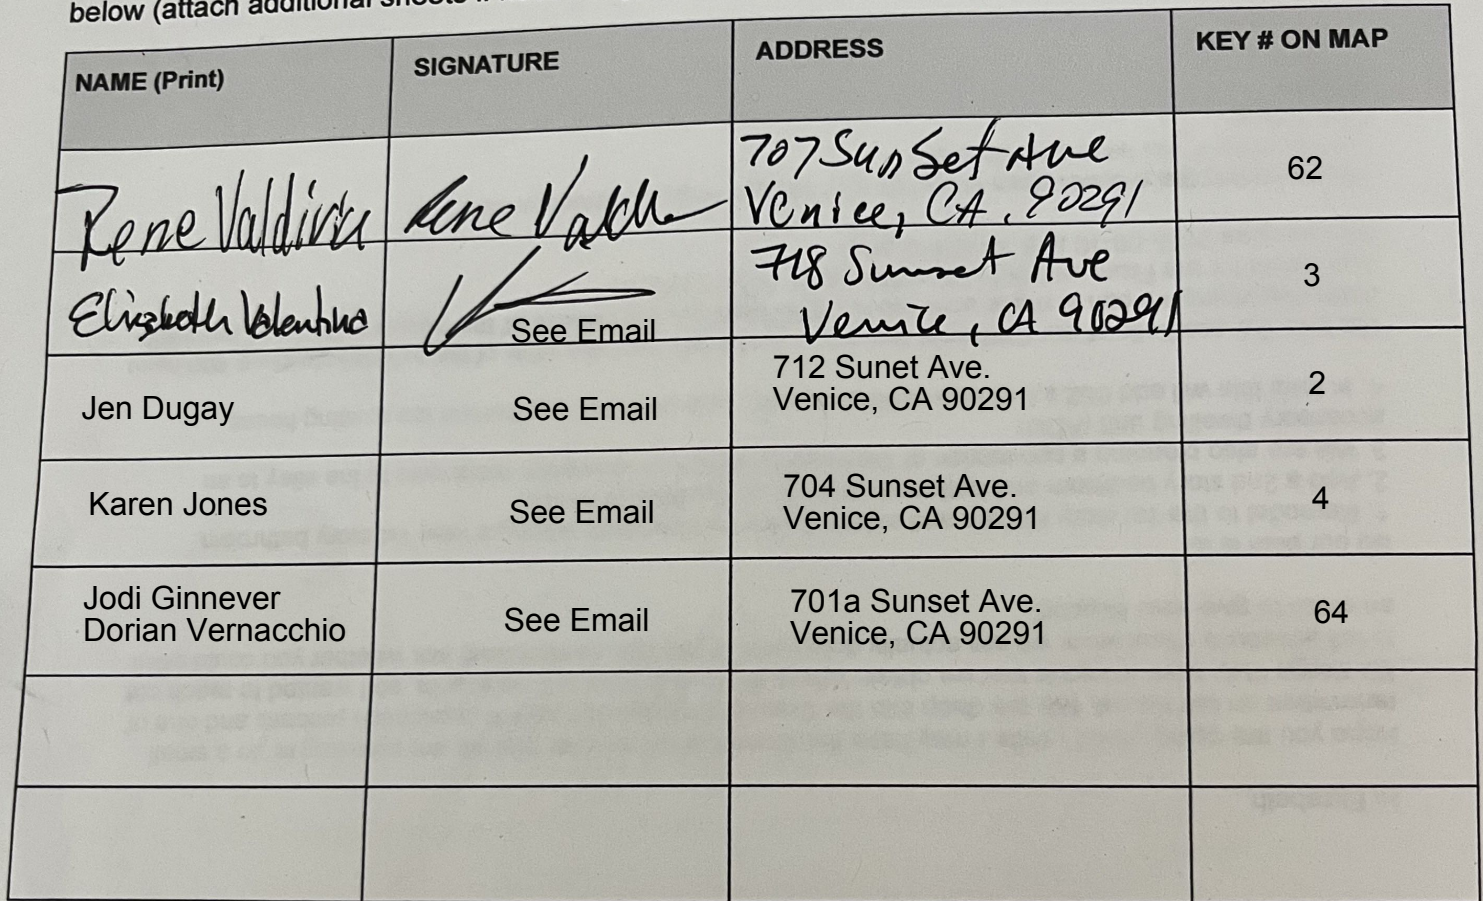 below (attach additional sheets
NAME (Print) SIGNATURE ADDRESS KEY # ON MAP
Rene Valdivia Rene 707 Sunset Ave 62
Venice, CA. 90291
Elizabeth Valentine See Email 718 Sunset Ave 3
Venice, CA 90291
Jen Dugay See Email 712 Sunet Ave. 2
Venice, CA 90291
Karen Jones See Email 704 Sunset Ave. 4
Venice, CA 90291
Jodi Ginnever See Email 701a Sunset Ave. 64
Dorian Vernacchio Venice, CA 90291